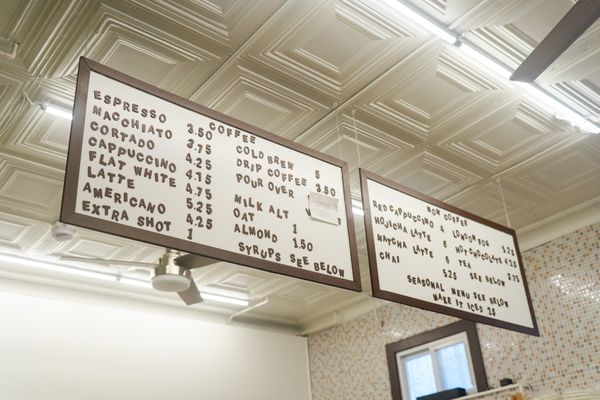 COFFEE
ESPRESSO 3.50
MACCHIATO 3.75
CORTADO 4.25
CAPPUCCINO 4.15
FLAT WHITE 4.75
LATTE 5.25
AMERICANO 4.25
EXTRA SHOT 1
COLD BREW 5
DRIP COFFEE 3.50
POUR OVER
MILK ALT
OAT 1
ALMOND 1.50
SYRUPS SEE BELOW
NON COFFEE
RED CAPPUCCINO 4
HOJICHA LATTE 6
MATCHA LATTE 6
CHAI 5.25
LONDON FOG 5.25
HOT CHOCOLATE 4.25
TEA 3.75
SEE BELOW
SEASONAL MENU SEE BELOW
MAKE IT ICED